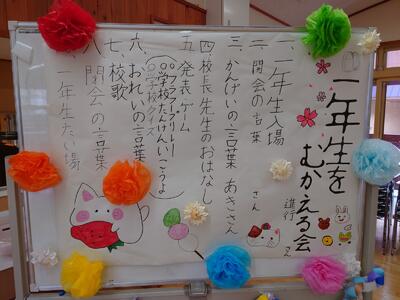 一年生を
むかえる会
進行 さん
一、一年生入場
二、開会の言葉 さん
三、かんげいの言葉 あきさん
四、校長先生のおはなし
五、発表・ゲーム
○学校たんけんにいこうよ
○学校クイズ
六、おれいの言葉
七、校歌
八、閉会の言葉
一、一年生たい場